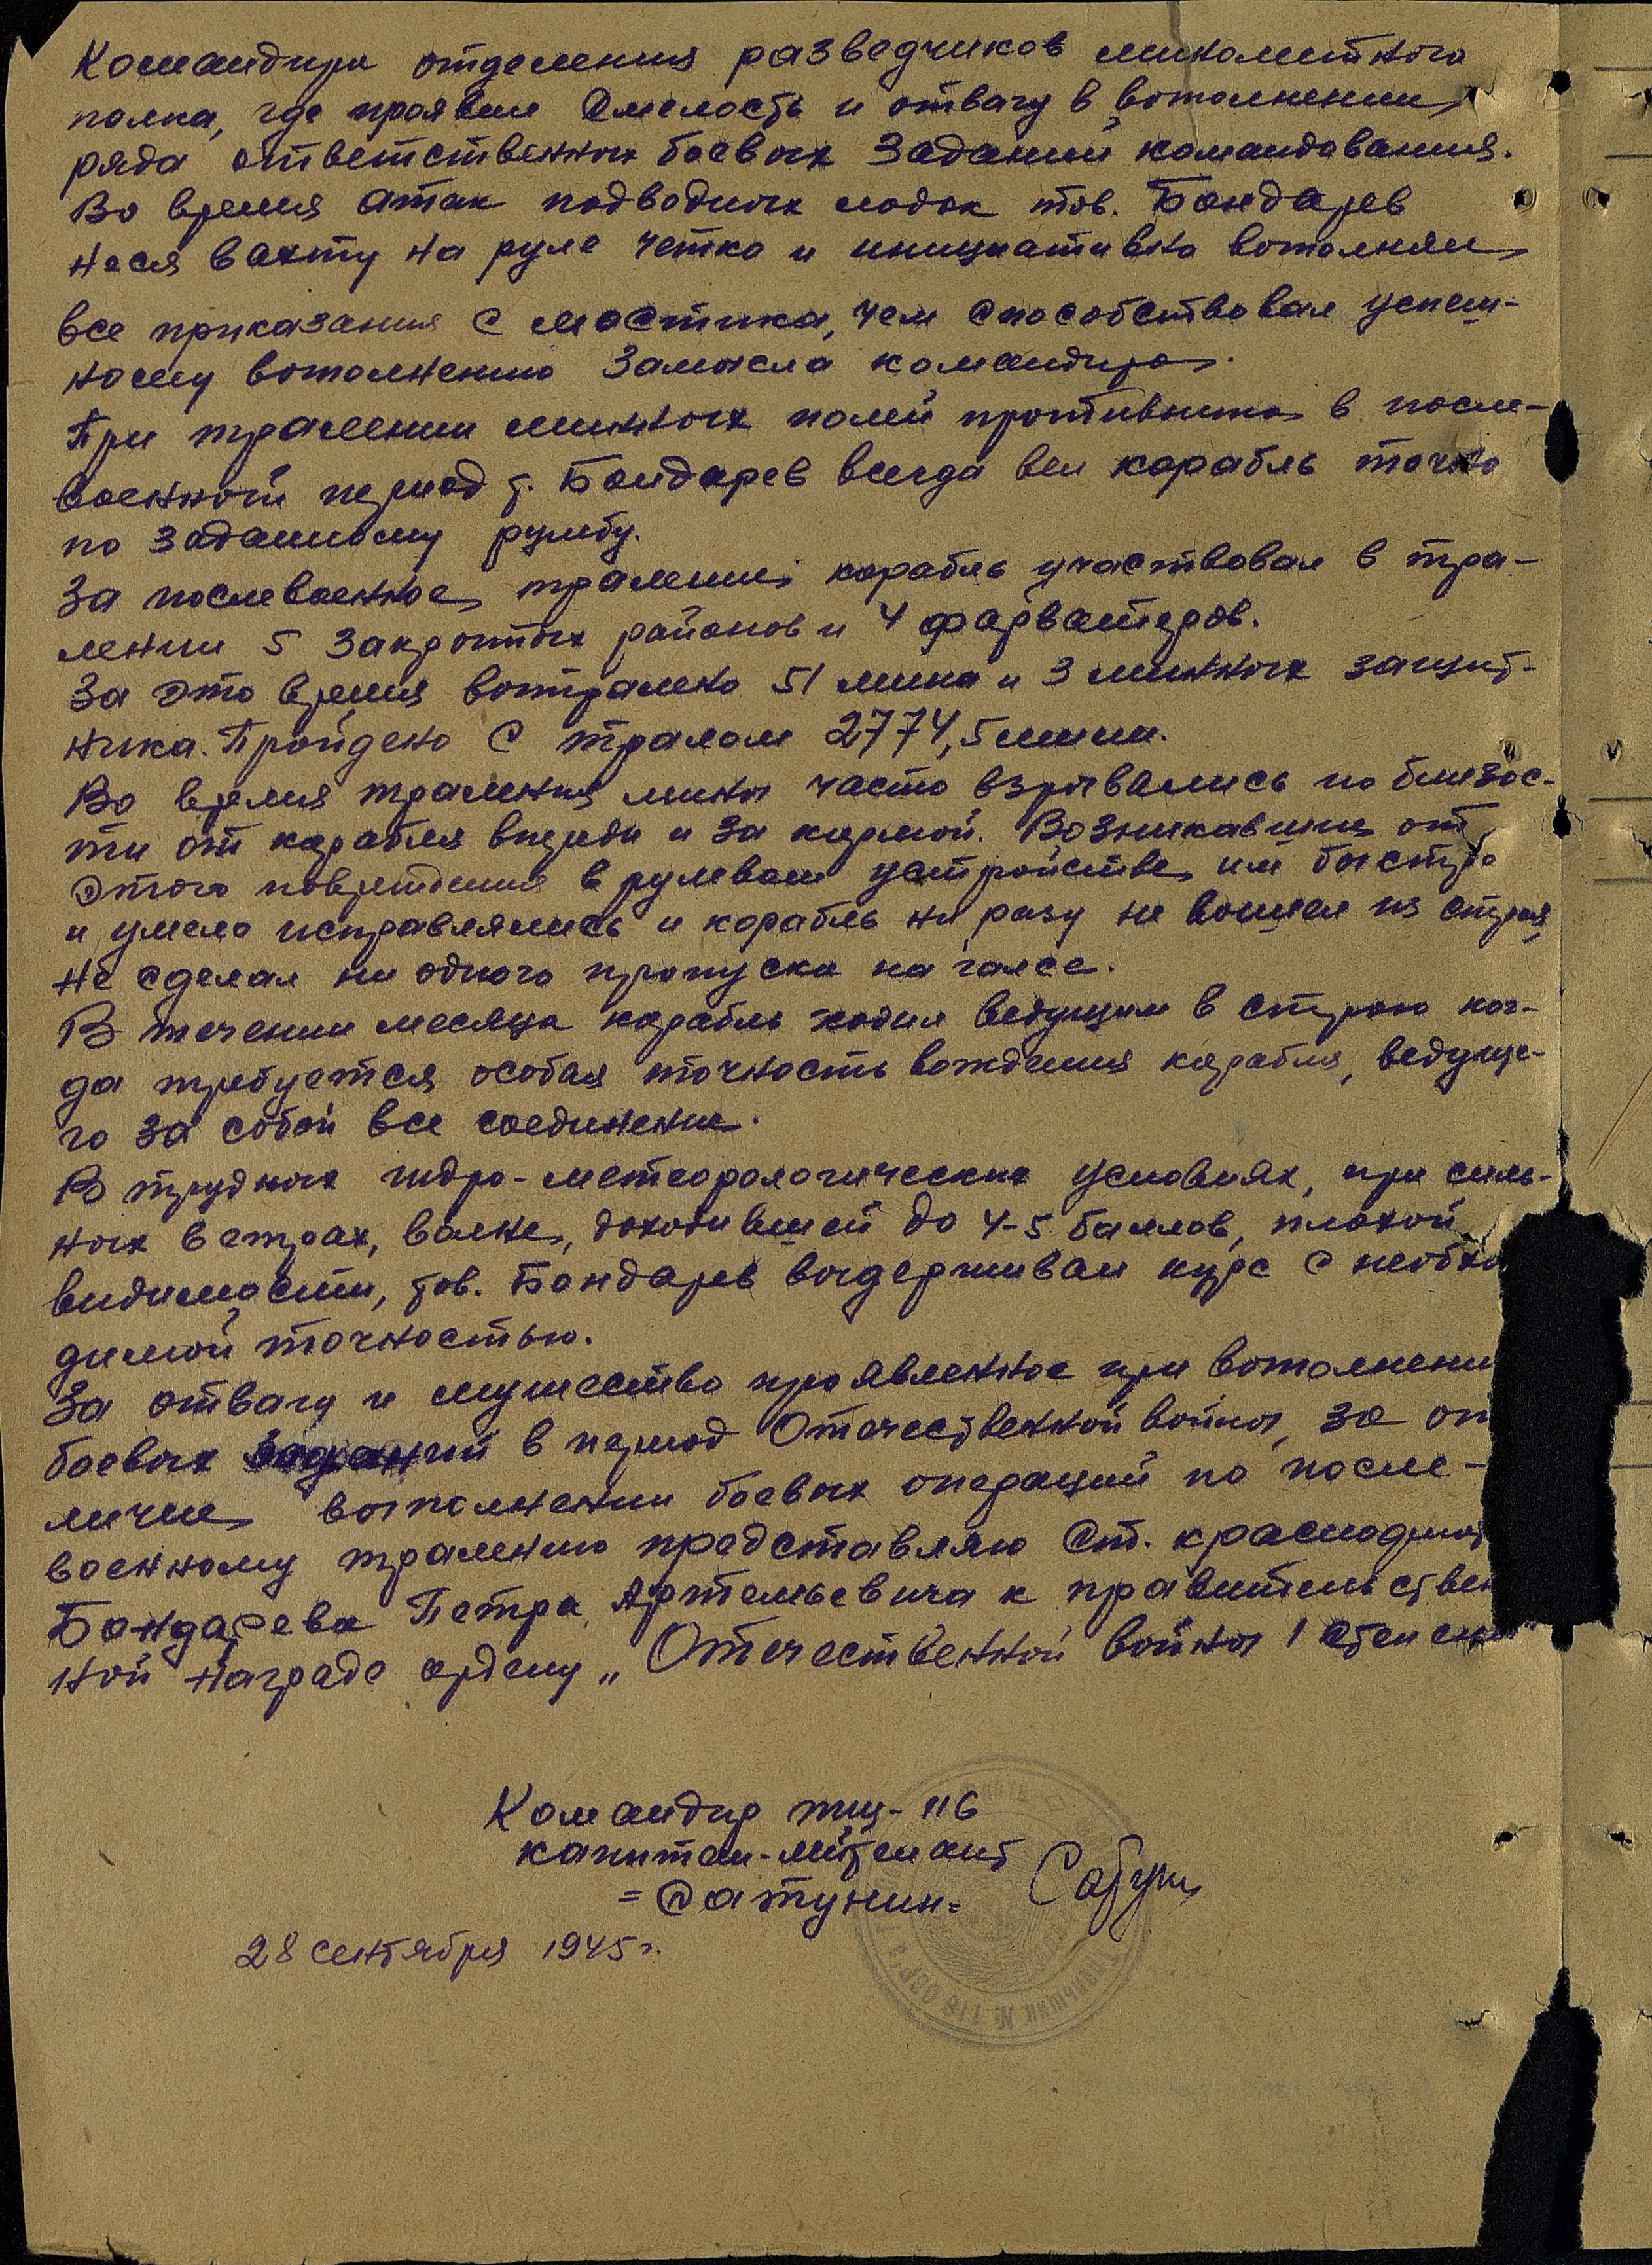 Командира отделения разведчиков минометного
полка, где проявил смелость и отвагу в выполнении
ряда ответственных боевых заданий командования.
Во время атак подводных лодок тов. Бондарев
неся вахту на руле четко и инициативно выполнял
все приказания с мостика, чем способствовал успеш-
ному выполнению замысла командира.
При тралении минных полей противника в после-
военный период т. Бондарев всегда вел корабль точно
по заданному румбу.
За послевоенное траление корабль участвовал в тра-
лении 5 закрытых районов и 4 фарватеров.
За это время вытралено 51 мина и 3 минных защит-
ника. Пройдено с тралом 2774,5 мили.
Во время траления мины часто взрывались по близос-
ти от корабля впереди и за кормой. Возникавшие от
этого повреждения в рулевом устройстве им быстро
и умело исправлялись и корабль ни разу не вышел из строя
не сделал ни одного пропуска на галсе.
В течении месяца корабль ходил ведущим в строю ког-
да требуется особая точность вождения корабля, ведуще-
го за собой все соединение.
В трудных гидро-метеорологических условиях, при силь-
ных ветрах, волне, доходившей до 4-5 баллов, плохой
видимости, тов. Бондарев выдерживал курс с необхо
димой точностью.
За отвагу и мужество проявленное при выполнени
боевых заданий в период Отечественной войны, за от
личие выполнении боевых операций по после-
военному тралению представляю ст. краснофлот
Бондарева Петра Артемьевича к правительствен
ной награде ордену „Отечественной войны 1 степени"
Командир тщ-116
капитан-лейтенант
=Сатунин=
28 сентября 1945 г.
Тральщик № 116